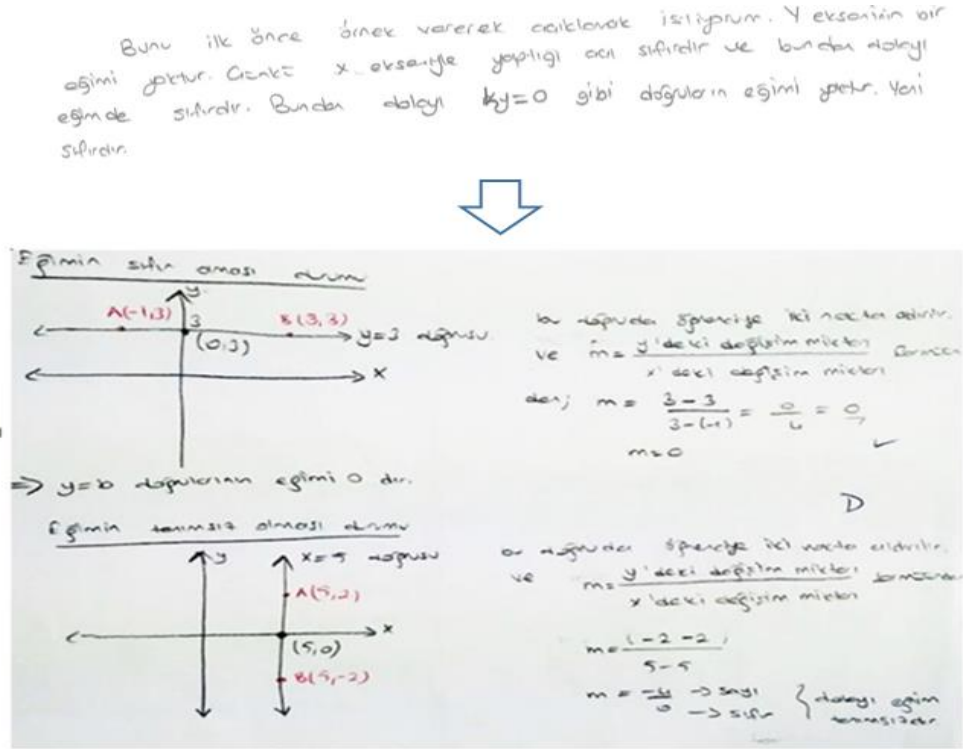 Bunu ilk önce örnek vererek açıklamak istiyorum. Y ekseninin bir
eğimi yoktur. Çünkü x ekseniyle yaptığı açı sıfırdır ve bundan dolayı
eğimde sıfırdır. Bundan dolayı ky=0 gibi doğruların eğimi yoktur. Yani
sıfırdır.
Eğimin sıfır olması durumu
y
A(-1,3)
3
B(3,3)
(0,3)
y=3 doğrusu
x
bu doğruda öğrenciye iki nokta
ve m= y'deki değişim miktarı
x'deki değişim miktarı
den; m = 3-3 / 3-(-1) = 0 = 0
m=0
=> y=b doğrularının eğimi 0 dır.
D
Eğimin tanımsız olması durumu
y
x=5 doğrusu
A(5,2)
x
(5,0)
B(5,-2)
bu doğruda öğrenciye iki nokta
ve m= y'deki değişim miktarı
x'deki değişim miktarı
m= (-2-2) / 5-5
m = -4 / 0 → sayı → sıfır } dolayı eğim
tanımsızdır.